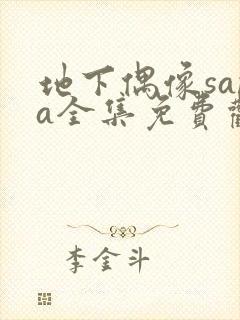 地下偶像sa
a全集免费
李金斗